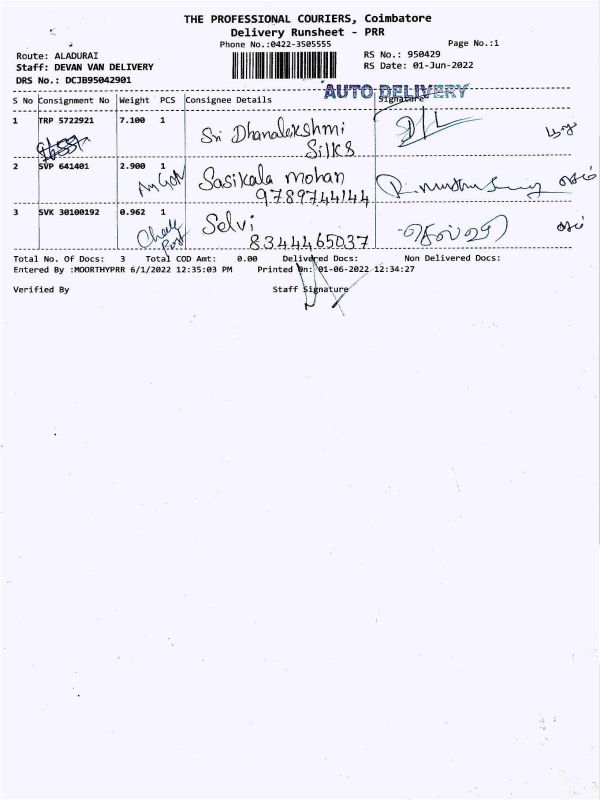 THE PROFESSIONAL COURIERS, Coimbatore
Delivery Runsheet - PRR
Phone No.:0422-3505555
Page No.:1
Route: ALADURAI
RS No.: 950429
Staff: DEVAN VAN DELIVERY
RS Date: 01-Jun-2022
DRS No.: DCJB95042901
AUTO DELIVERY
S No Consignment No Weight PCS Consignee Details Signature
1 TRP 5722921 7.100 1 Sri Dhanalekshmi
Silks
2 SVP 641401 2.900 1 Sasikala mohan
9789744144
3 SVK 30100192 0.962 1 Selvi
Check Post 8344465037
Total No. Of Docs: 3 Total COD Amt: 0.00 Delivered Docs: Non Delivered Docs:
Entered By :MOORTHYPRR 6/1/2022 12:35:03 PM Printed On: 01-06-2022 12:34:27
Verified By Staff Signature